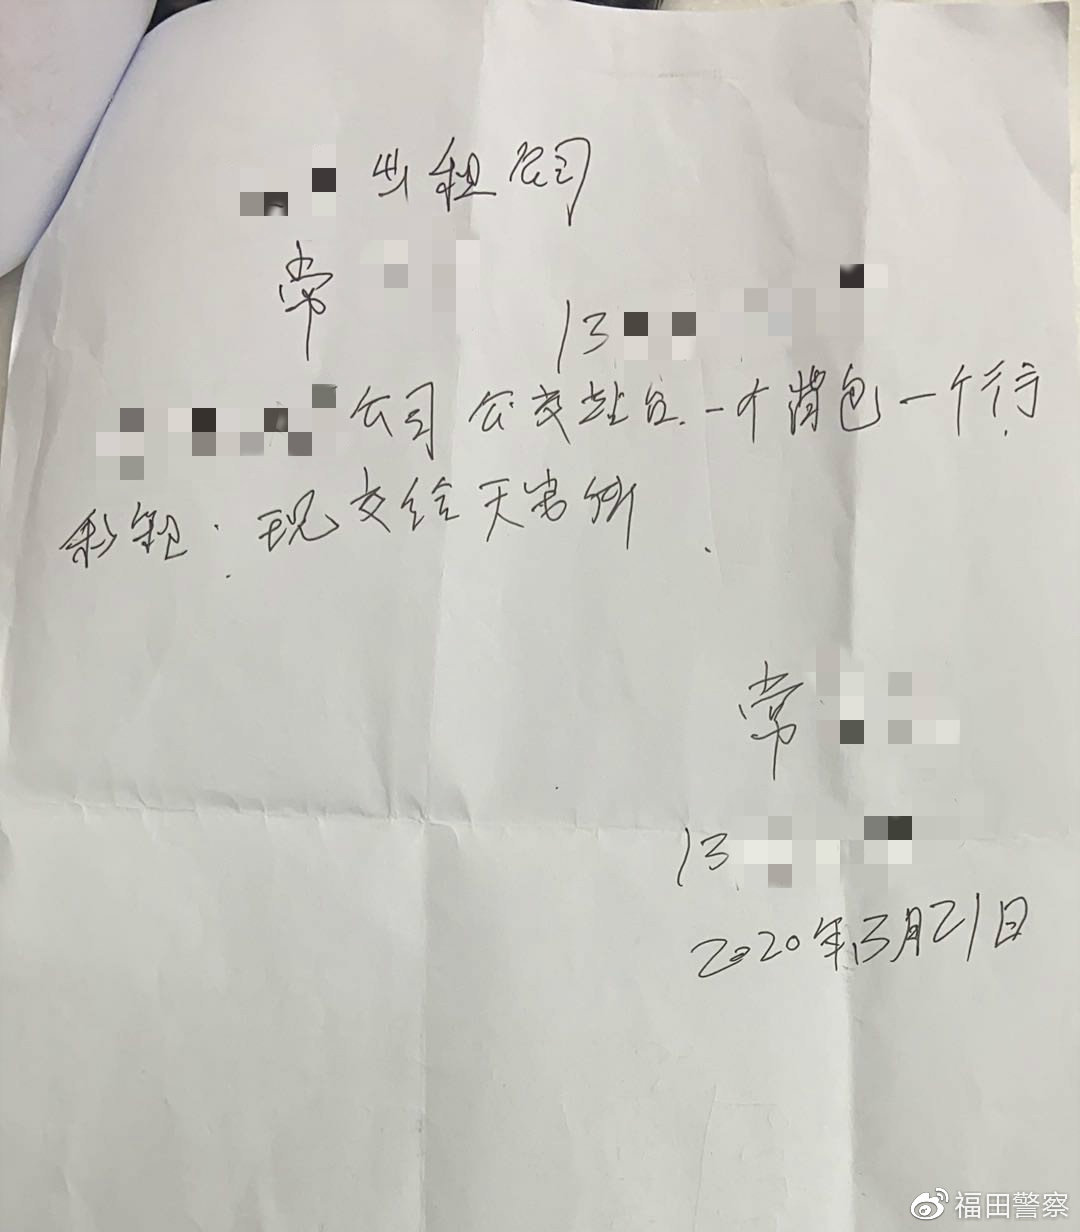 出租公司
常
13
公司公交站台一个背包一个行
李包.现交给天安所.
常
13
2020年3月21日
福田警察